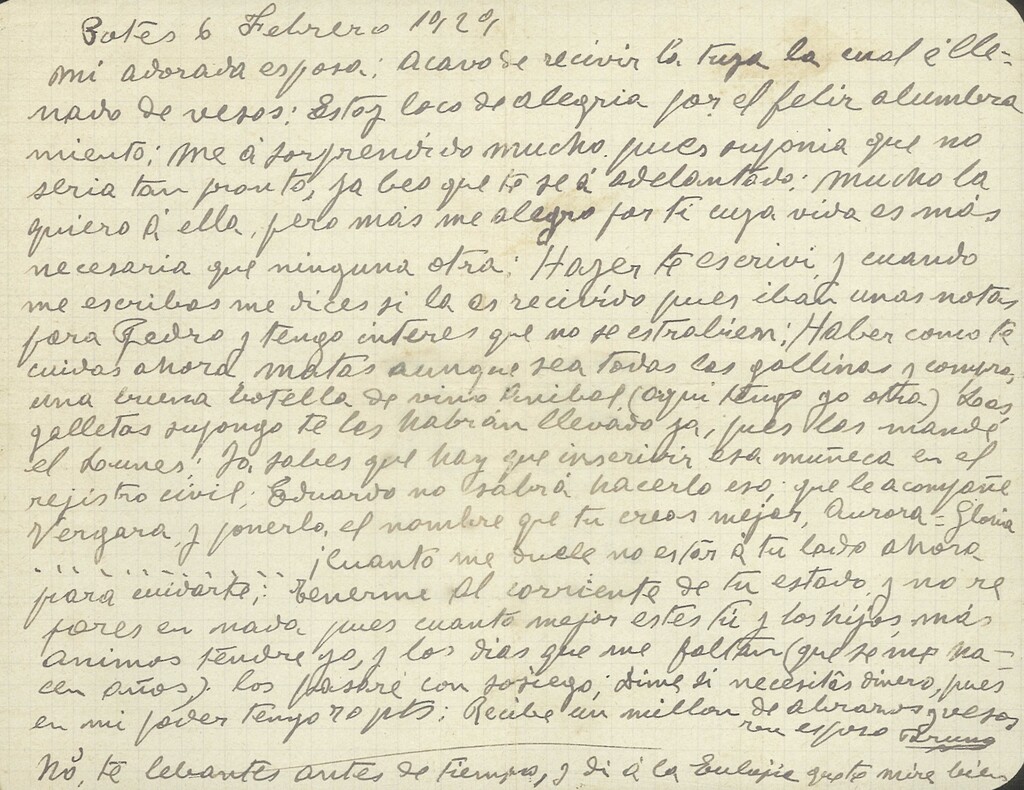 Potes 6 Febrero 1929
Mi adorada esposa: Acavo de recivir la tuya la cual é lle-
nado de vesos: Estoy loco de alegria por el feliz alumbra
miento; me á sorprendido mucho pues suponia que no
seria tan pronto, ya beo que te se á adelantado; mucho la
quiero á ella, pero más me alegro por ti cuya vida es más
necesaria que ninguna otra: Hayer te escrivi, y cuando
me escribas me dices si la as recivido pues iban unas notas
para Pedro y tengo interes que no se estrabien; Haber como te
cuidas ahora, matas aunque sea todas las gallinas y compra,
una buena botella de vino (aqui tengo yo otra) Las,
galletas supongo te las habrán llevado ya, pues las mandé
el Lounes; Ya sabes que hay que inscrivir esa muñeca en el
rejistro civil; Eduardo no sabrá hacerlo eso, que le acompañe
Vergara, y ponerla el nombre que tu creas mejor, Aurora = Gloria
¡Cuanto me duele no estár á tu lado ahora
para cuidarte; Tenerme al corriente de tu estado, y no re
pares en nada pues cuanto mejor estes tú y los hijos, más
animos tendre yo, y los dias que me faltan (que se me ha-
cen años) los pasaré con sosiego; dime si necesitas dinero, pues
en mi poder tengo 70 pts; Recibe un millon de abrazos y vesos
tu esposo Bruno
No, te lebantes antes de tiempo, y di á la Eulojia que te mire bien